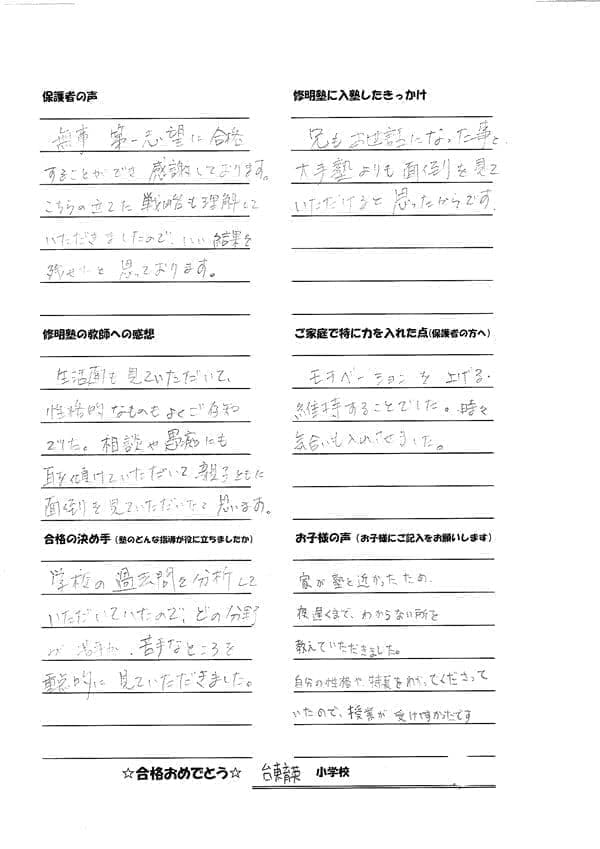 保護者の声
無事 第一志望に合格
することができ 感謝しております。
こちらの立てた 戦略も理解して
いただきましたので、いい結果を
残せたと 思っております。
修明塾の教師への感想
生活面も見ていただいて、
性格的なものもよくご存知
でした。相談や愚痴にも
耳を傾けていただいて、親子ともに
面倒を見ていただいたと思います。
合格の決め手(塾のどんな指導が役に立ちましたか)
学校の過去問を分析して
いただいていたので、どの分野
が 苦手か、苦手なところを
重点的に 見ていただきました。
修明塾に入塾したきっかけ
兄もお世話になった事と、
大手塾よりも面倒を見て
いただけると思ったからです。
ご家庭で特に力を入れた点(保護者の方へ)
モチベーションを上げる・
維持することでした。時々
気合いも入れさせました。
お子様の声(お子様にご記入をお願いします)
家が塾と近かったため、
夜遅くまで、わからない所を
教えていただきました。
自分の性格や、特長をわかってくださって
いたので、授業が受けやすかったです
☆合格おめでとう☆ 台東育英 小学校